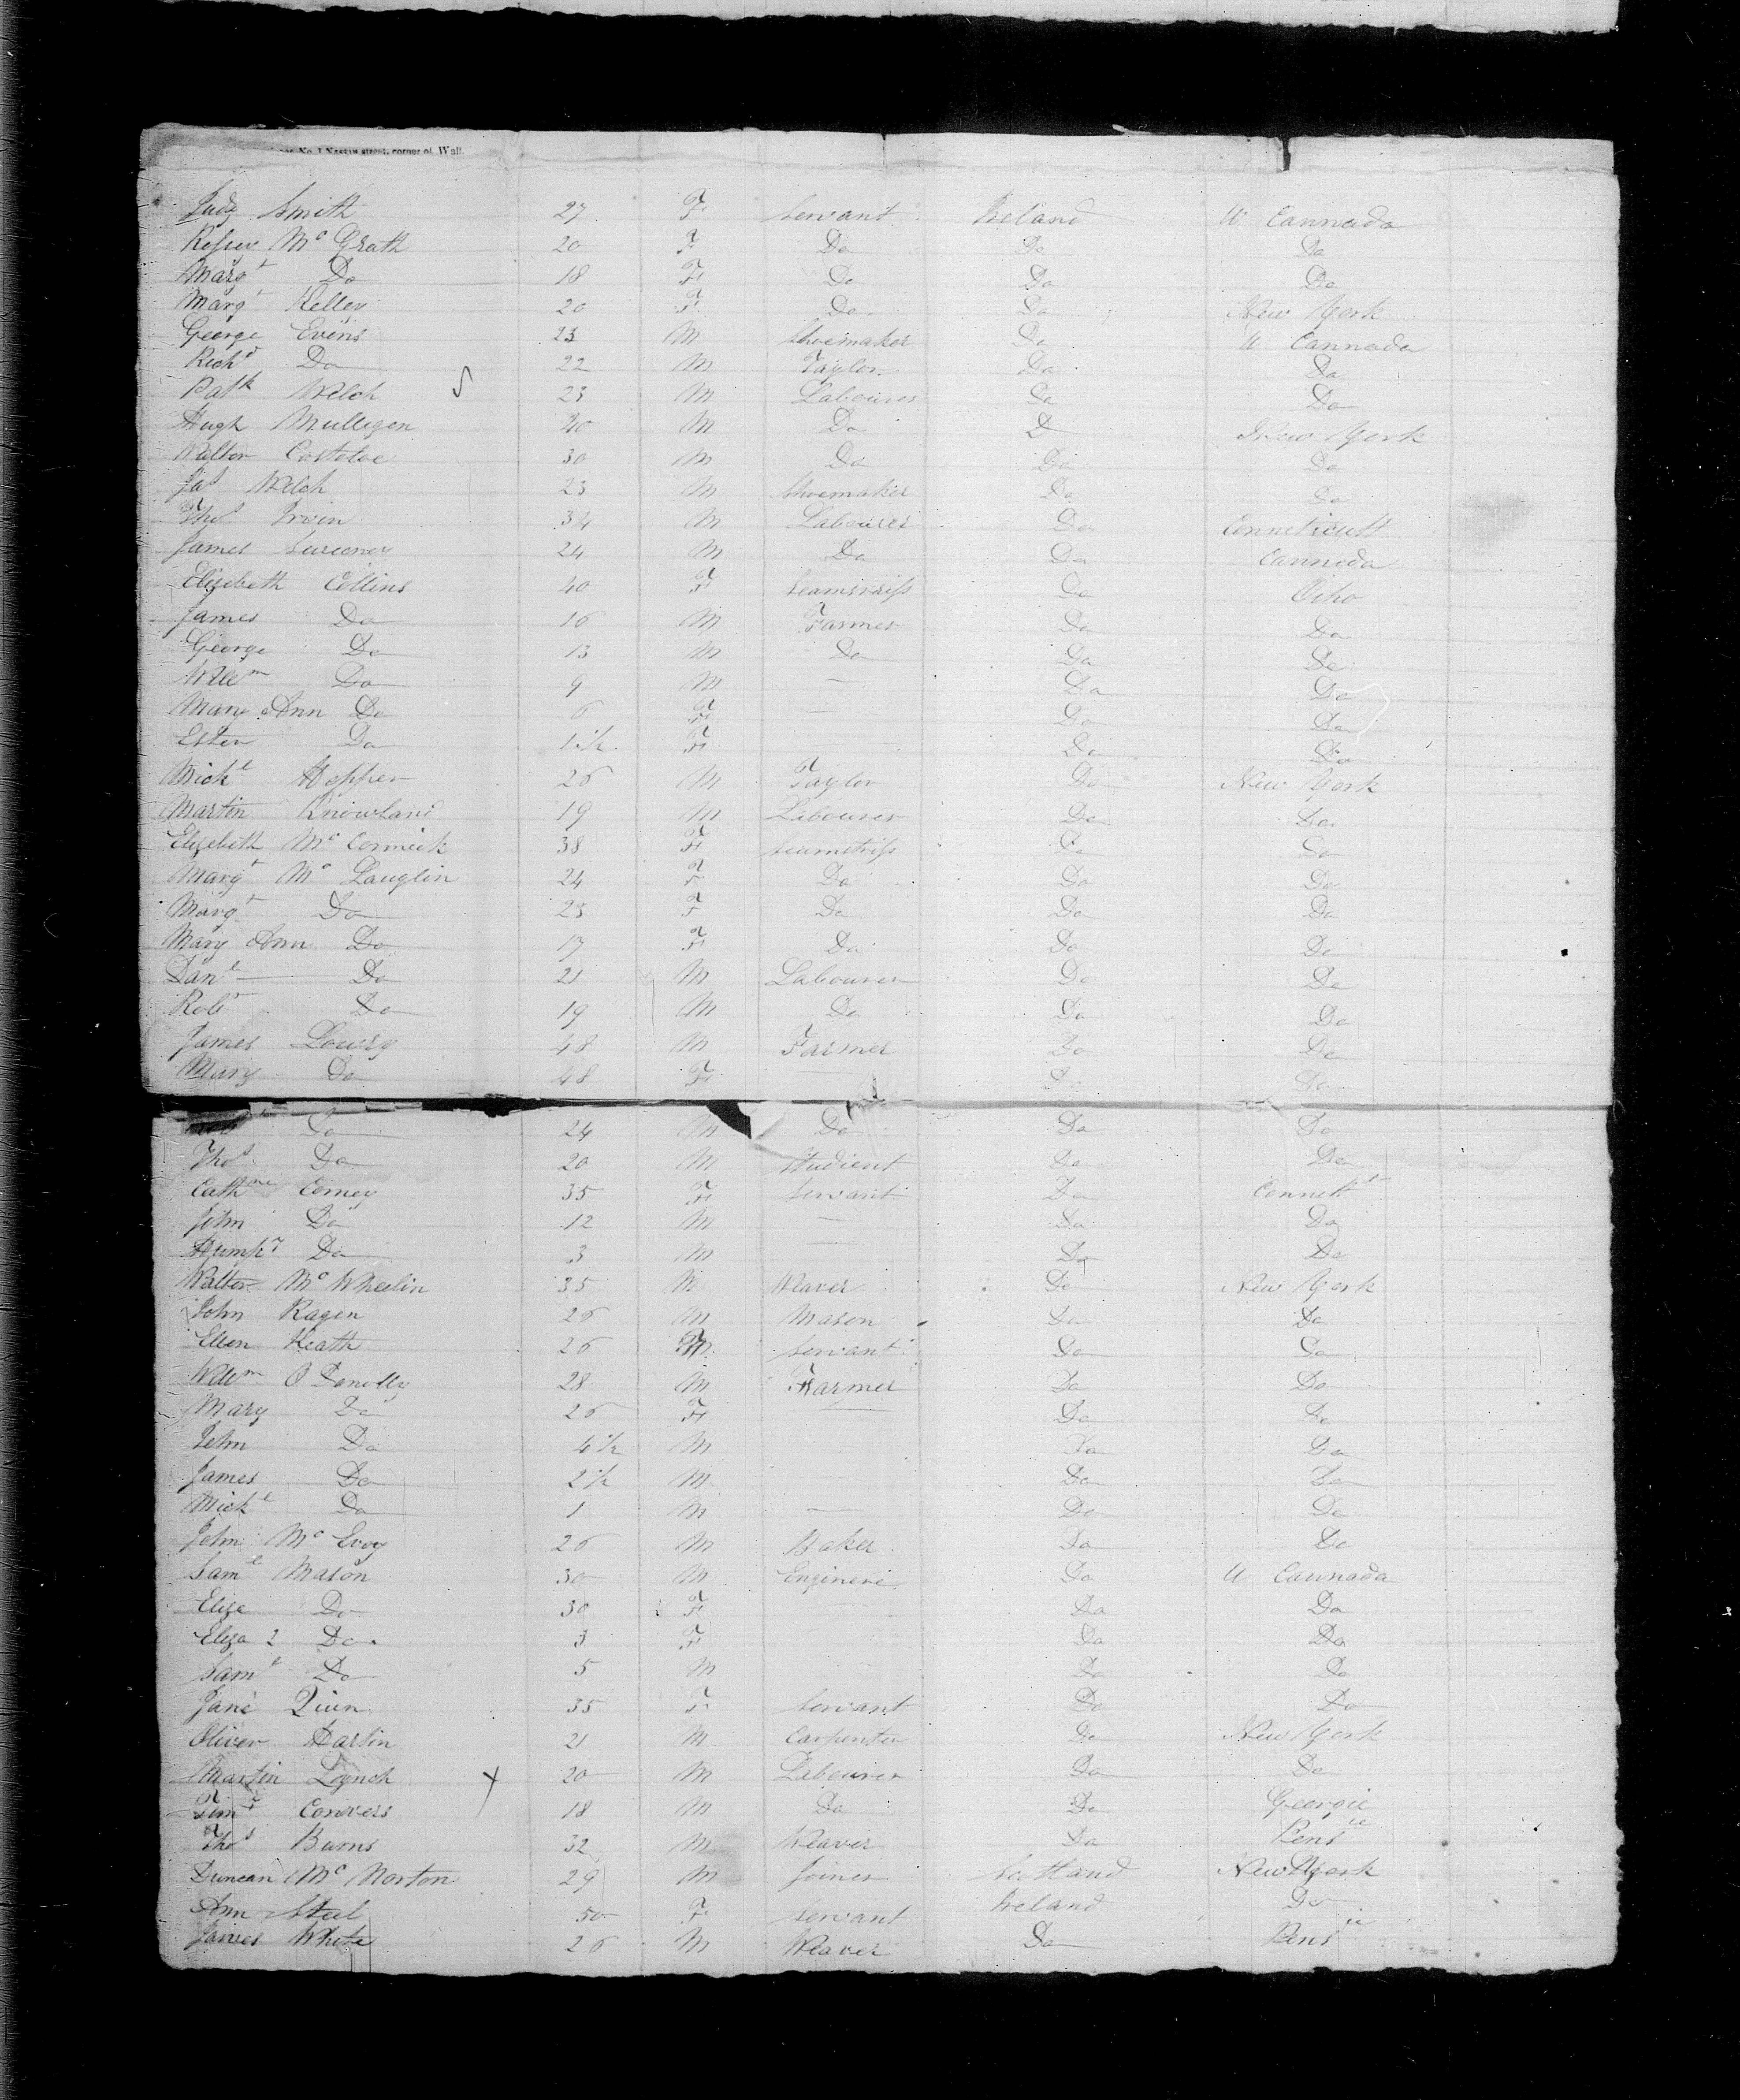 No 1 Nassau street, corner of Wall.
Judy Smith 27 F Servant Ireland U Cannada
Mc Grath 20 F Do Do Do
Margt Do 18 F Do Do Do
Margt Kelley 20 F Do Do New York
George Evens 23 M Shoemaker Do U Cannada
Richd Do 22 M Taylor Do Do
Patk Welch 23 M Labourer Do Do
Hugh Mulligen 40 M Do D New York
Walter Costeloe 30 M Do Do Do
Jas Welch 23 M Shoemaker Do Do
Thos Irven 34 M Labourer Do Conneticutt
James Sweeney 24 M Do Do Canneda
Elizebeth Collins 40 F Seamstriss Do Oiho
James Do 16 M Farmer Do Do
George Do 13 M Do Do Do
Willm Do 9 M — Do Do
Mary Ann Do 6 F — Do Do
Ester Do 1 1/2 F — Do Do
Michl Hopper 26 M Taylor Do New York
Martin Knowland 19 M Labourer Do Do
Elizebeth Mc Cormick 38 F Seamstriss Do Do
Margt Mc Lauglin 24 F Do Do Do
Margt Do 23 F Do Do Do
Mary Ann Do 17 F Do Do Do
Danl Do 21 M Labourer Do Do
Robt Do 19 M Do Do Do
James Lowry 48 M Farmer Do Do
Mary Do 48 F — Do Do
Do 24 M Do Do Do
Thos Do 20 M Student Do Do
Cathne Comey 35 F Servant Do Connett
John Do 12 M — Do Do
Humpy Do 3 M — Do Do
Walter Mc Wheelin 35 M Weaver Do New York
John Ragen 26 M Mason Do Do
Ellen Heath 26 F Servant Do Do
Willm O Donolly 28 M Farmer Do Do
Mary Do 26 F — Do Do
John Do 4 1/2 M Do Do
James Do 2 1/2 M Do Do
Michl Do 1 M — Do Do
John Mc Evoy 26 M Baker Do Do
Saml Mason 30 M Enginere Do U Cannada
Eliza Do 30 F Do Do
Eliza 2 Do 3 F Do Do
Saml Do 5 M Do Do
Jane Quin 35 F Servant Do Do
Oliver Harlin 21 M Carpenter Do New York
Martin Lynch X 20 M Labourer Do Do
Timy Conners 18 M Do Do Georgie
Thos Burns 32 M Weaver Do Pens
Duncan Mc Norton 29 M Joiner Scotland New York
Ann Steel 50 F Servant Ireland Do
James White 26 M Weaver Do Pens